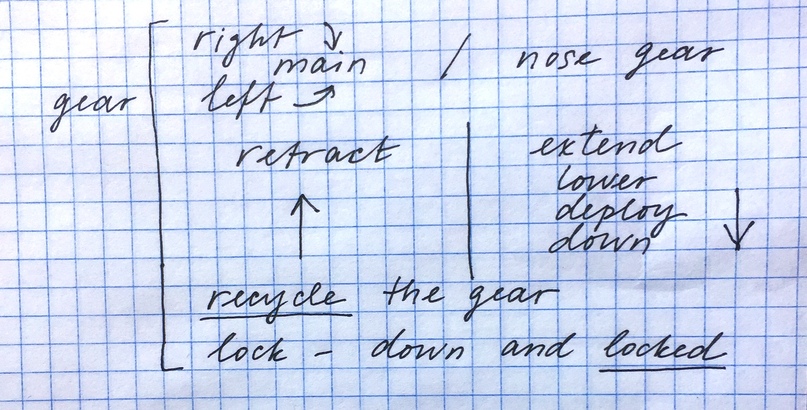 right
main / nose gear
gear left
retract extend
lower
deploy
down
recycle the gear
lock - down and locked